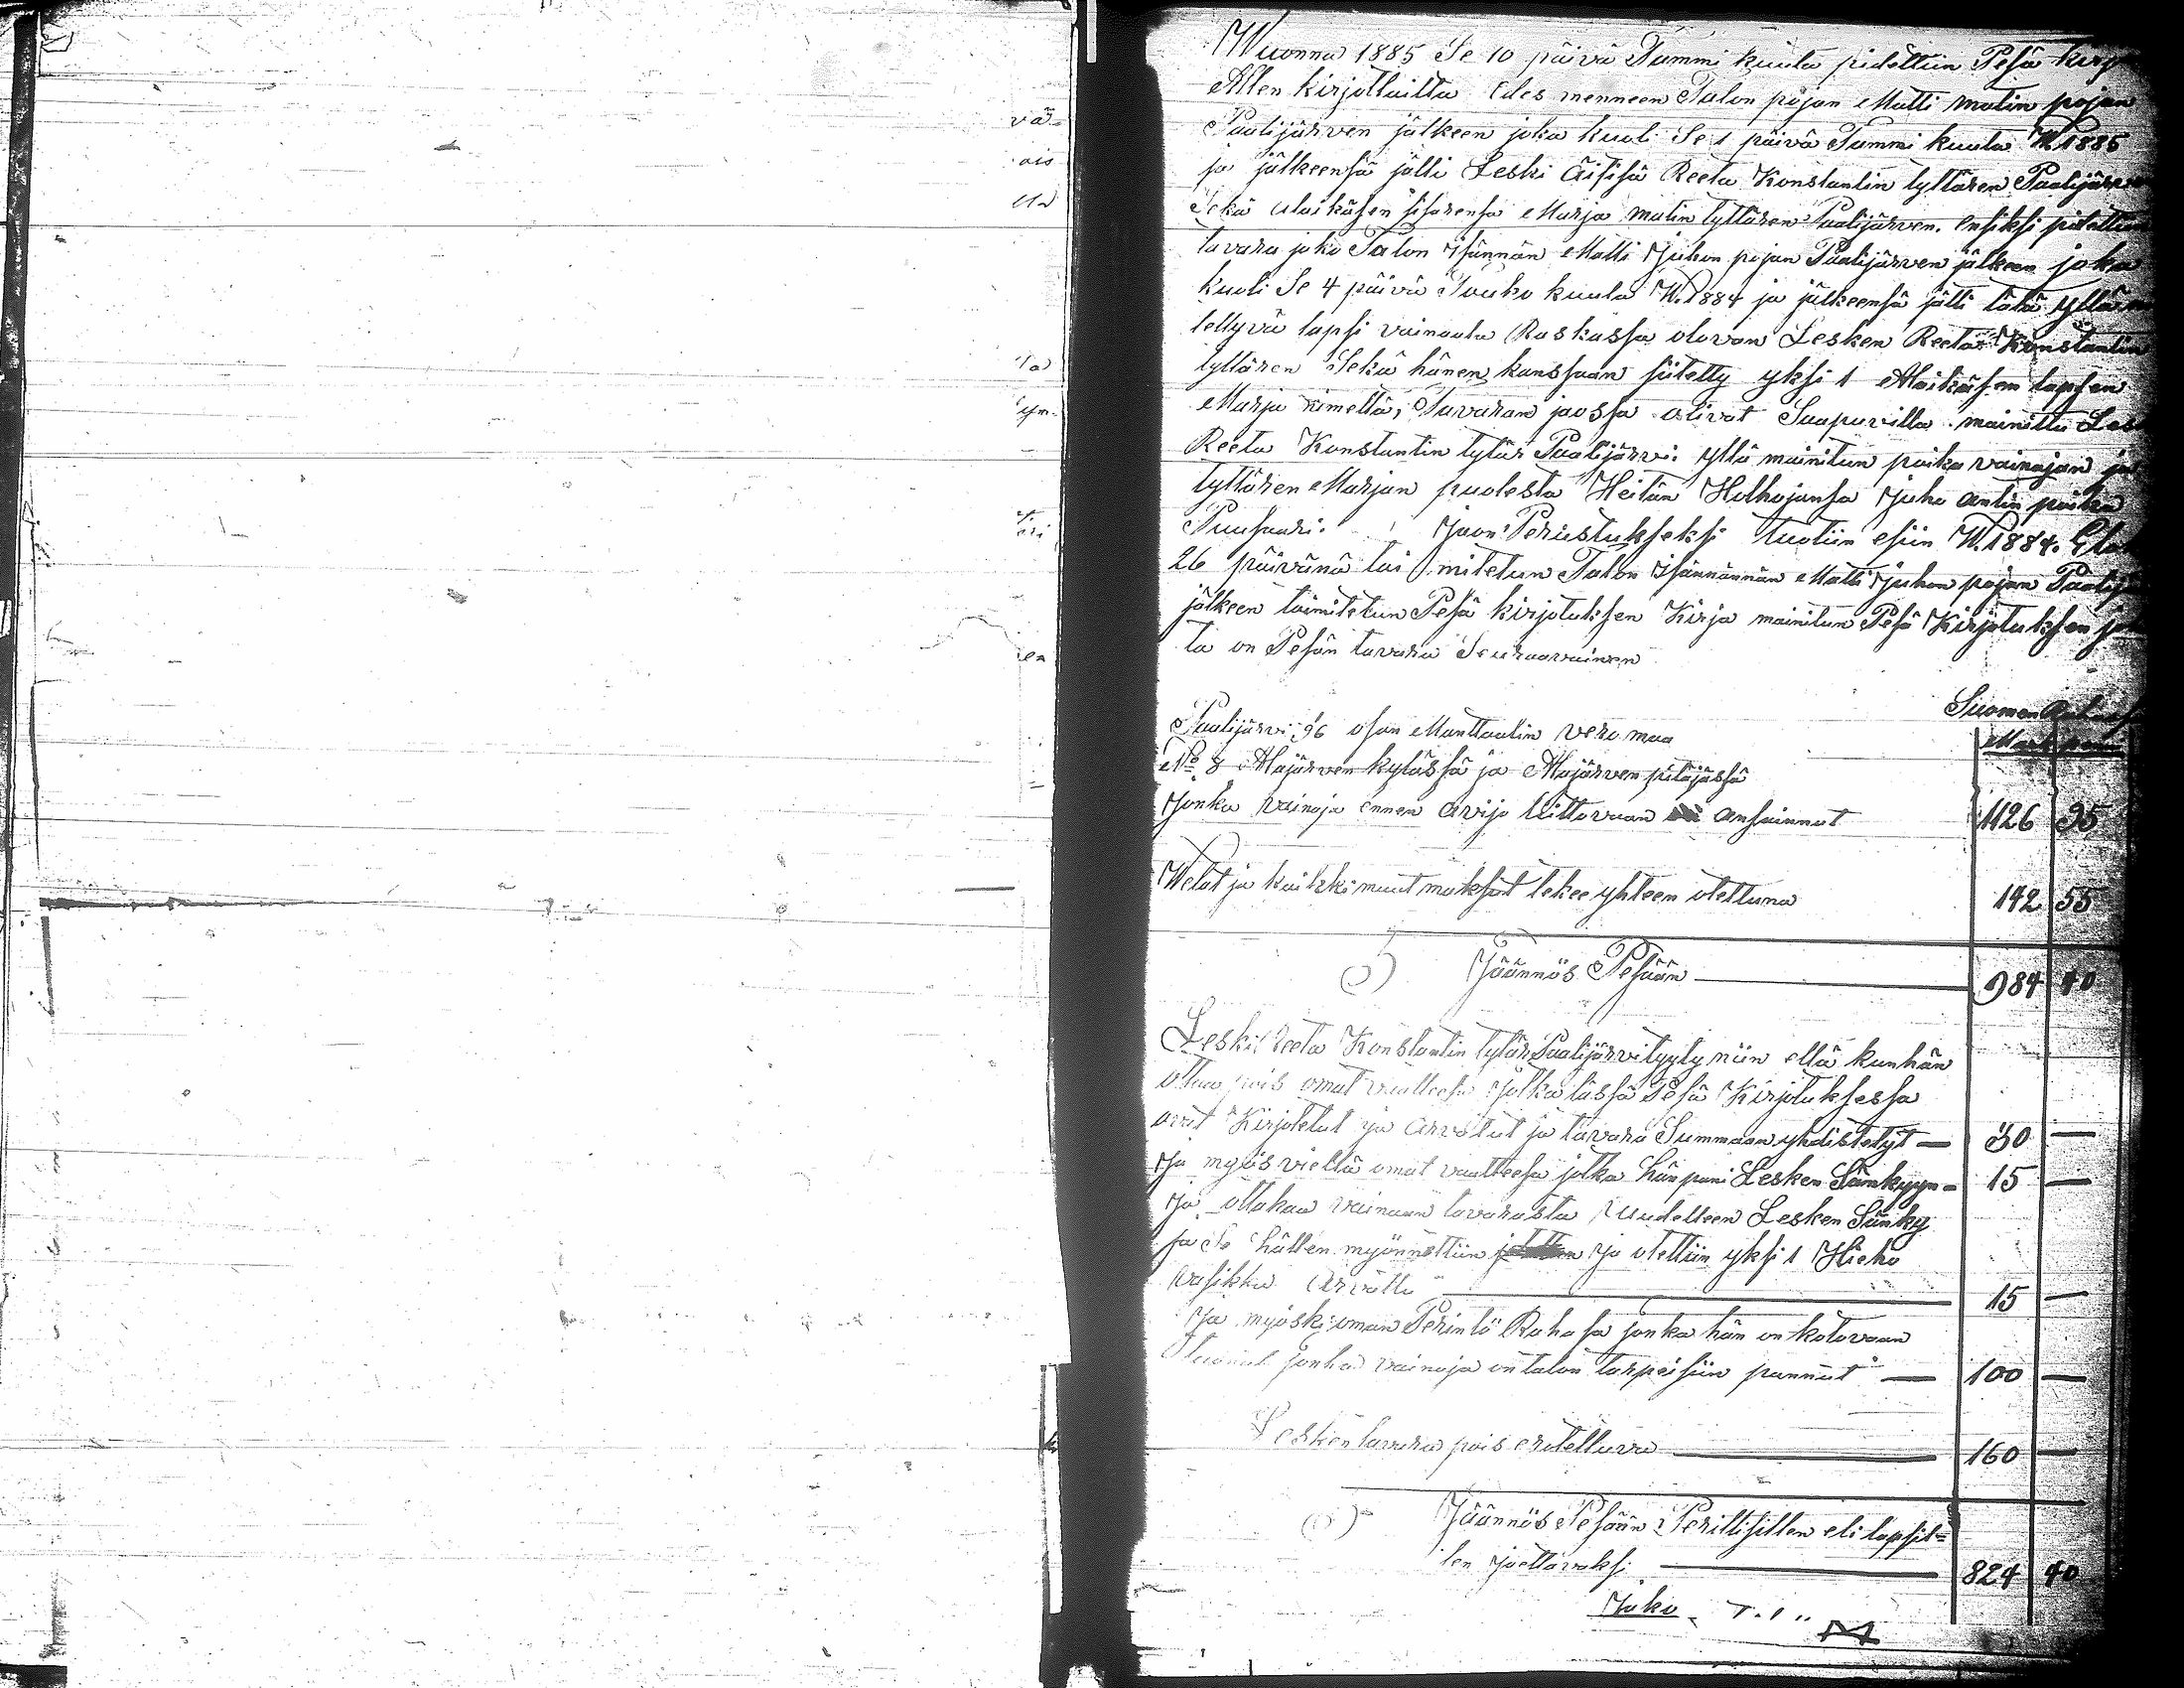 vä-
ois
Wuonna 1885 Se 10 päivä Tammi kuuta pidettiin Pesä kirj
Allen kirjotluitta Edes menneen Talon pojan Matti matin pojan
Paalijärven jälkeen joka kuoli Se 1 päivä Tammi kuuta W. 1885
ja jälkeensä jälti Leski äitisä Reeta Konstantin tyttären Paalijärven
Sekä alaikäsen sisarensa Marja matin tyttären Paalijärven. ensiksi pidettiin
tavara jako Talon Isännän Matti Juhon pojan Paalijärven jälkeen joka
kuoli Se 4 päivä Touko kuuta W. 1884 ja jälkeensä jätti tähä yllä
lellyvä lapsi vainaata Raskassa olovan Lesken Reeta Konstantin
tyttären Sekä hänen kanssaan siitetty yksi 1 Alaikäsen lapsen
Marja nimeltä, Tavaran jaossa olivat Saapuvilla mainittu Les
Reeta Konstantin tytär Paalijärvi. yllä mainitun poika vainajan ja
tyttären Marjan puolesta Heitän Holhojansa Juho antin poika
Puusaari. Jaon Perustukseksi tuotiin esiin W. 1884. Elo
26 päivänä toi mitetun Talon Isännännän Matti Juhon pojan Paalij
jälkeen toimitetun Pesä kirjotuksen Kirja mainitun Pesä Kirjotuksen jo
ta on Pesän tavara Seuraavainen
Suomen
Paalijärvi 96 osan Manttaalin vero maa
No 8 Alajärven kylässä ja Alajärven pitäjässä
Jonka vainaja ennen avijo liittovaan ansainnut 1126 95
Welat ja kaikki muut maksut tekee yhteen otettuna 142 55
Jäännös Pesään 984 40
Leski Reeta Konstantin tytär Paalijärvi tyyty niin että kun hän
ottaa pois omat vaatteesa Jotka tässä Pesä Kirjotuksessa
ovat Kirjotetut ja arvotut ja tavara Summaan yhdistetyt — 30 —
Ja myös vieltä omat vaatteesa jotka hän pani Lesken Sänkyyn - 15 —
Ja ottakaa vainaan tavarasta Uudelleen Lesken Sänky
ja Se hällen myönnettiin ja otettiin yksi 1 Hieho
vasikka arvattu 15 —
Ja myöski oman Perintö Rahasa jonka hän on kotovaan
tuonut jonka vainaja on talon tarpeisiin pannut — 100 —
Lesken tavara pois eritelluva 160 —
Jäännös Pesään Perillisillen eli lapsil=
len Jaettavaksi 824 40
Jako